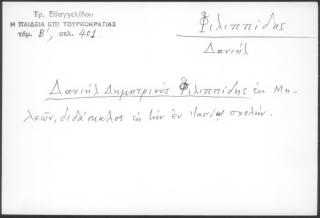 Τρ. Εὐαγγελίδου
Η ΠΑΙΔΕΙΑ ΕΠΙ ΤΟΥΡΚΟΚΡΑΤΙΑΣ
τόμ. Β', σελ. 401.
Φιλιππίδης
Δανιήλ
Δανιήλ Δημητριεύς Φιλιππίδης ἐκ Μη-
λεῶν, διδάσκαλος ἐν τῇ ἐν Ἰασίῳ σχολῇ.